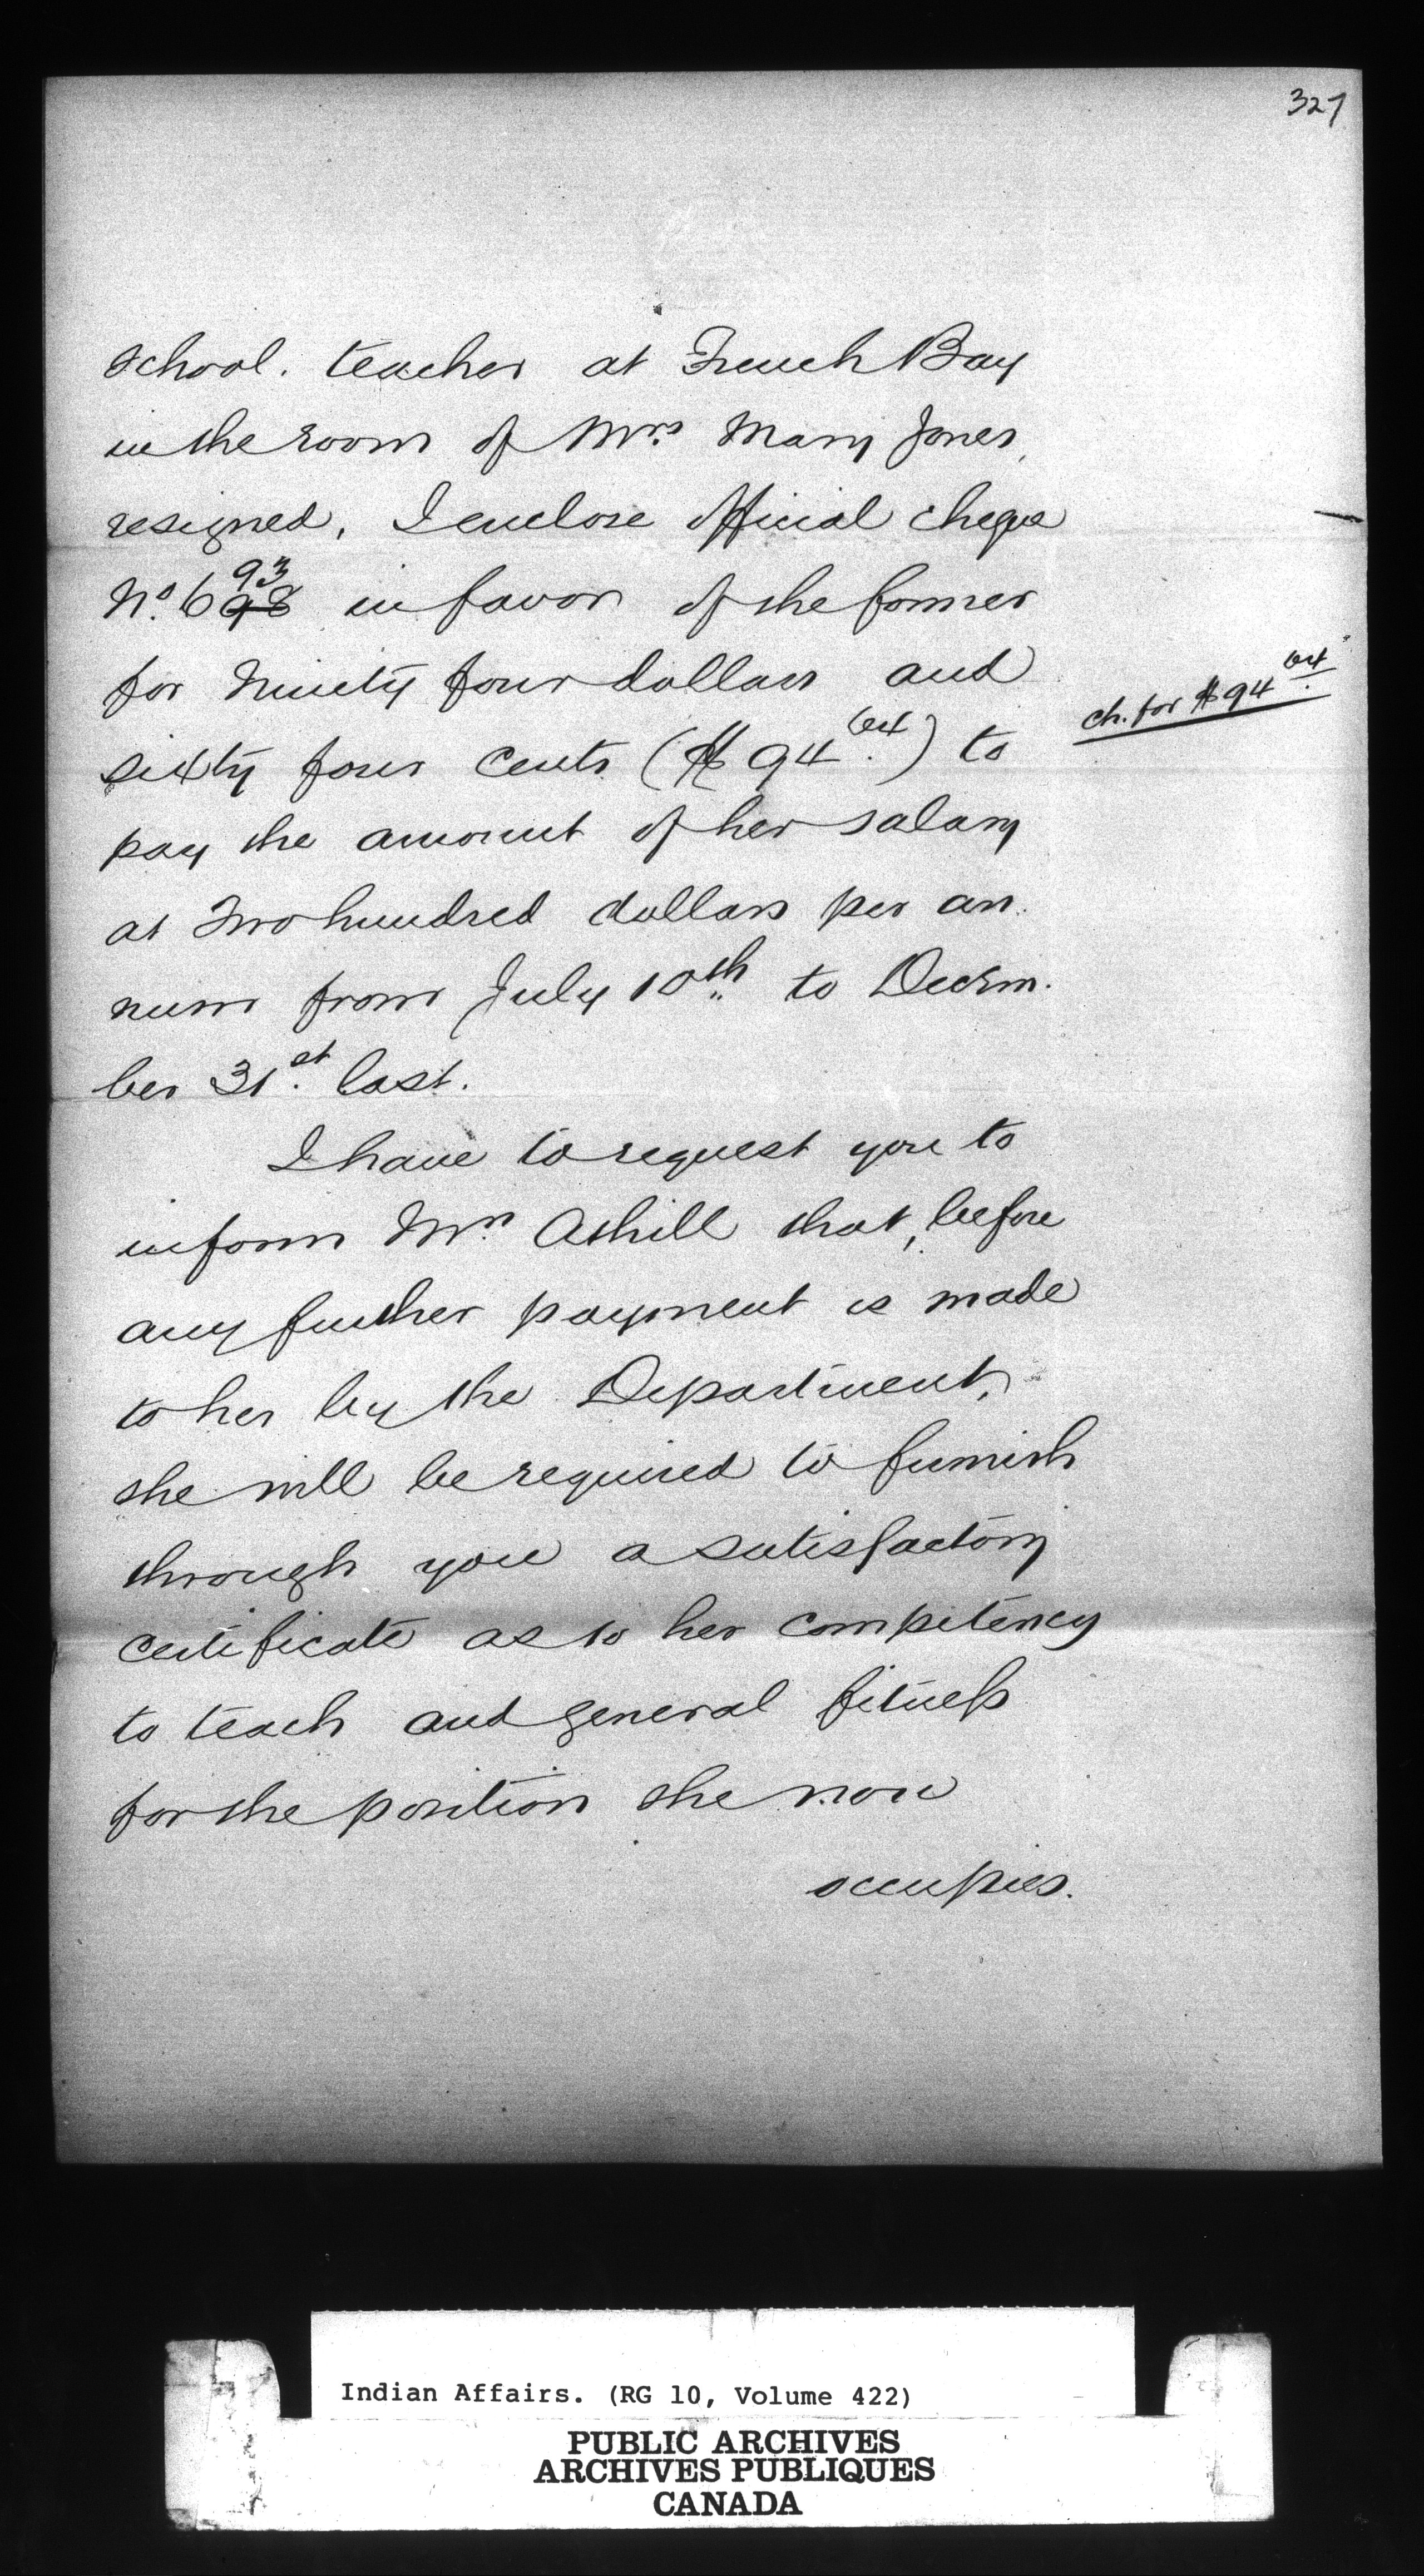 327
school. teacher at French Bay
in the room of Mrs. Mary Jones,
resigned, I enclose official cheque
93
No. 698 in favor of the former
for Ninety four dollars and
sixty four cents ($94.64) to
ch. for $94.64
pay the amount of her salary
at Two hundred dollars per an.
num from July 10th to Decem.
ber 31st. last.
I have to request you to
inform Mrs. Athill that, before
any further payment is made
to her by the Department,
she will be required to furnish
through you a satisfactory
certificate as to her competency
to teach and general fitness
for the position she now
occupies.
Indian Affairs. (RG 10, Volume 422)
PUBLIC ARCHIVES
ARCHIVES PUBLIQUES
CANADA